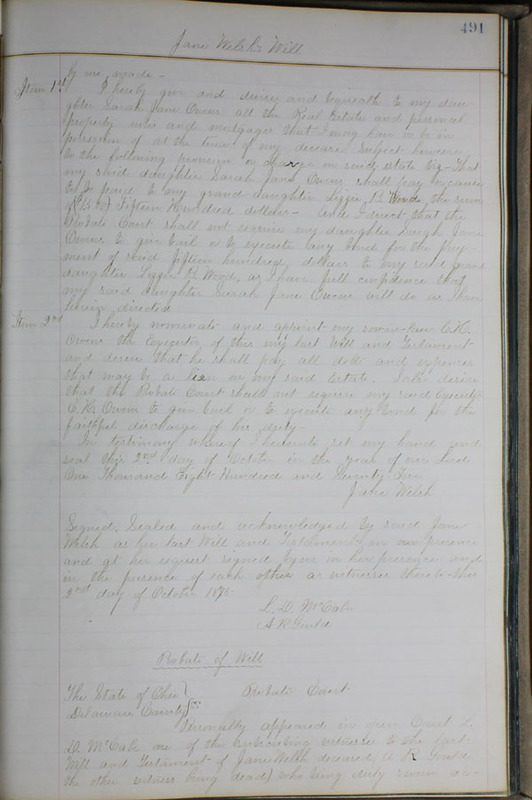 491
Jane Welch's Will
by me made -
Item 1st I hereby give and devise and bequeath to my dau
ghter Sarah Jane Owen all the Real Estate and personal
property now and mortgages that I may have or be in
possession of at the time of my decease. Subject however
to the following provision or charge on said estate viz - That
my said daughter Sarah Jane Owen shall pay or cause
to be paid to my grand daughter Lizzie B. Wood the sum
of Fifteen Hundred dollars - And I direct that the
Probate Court shall not require my daughter Sarah Jane
Owen to give bail or to execute any bond for the pay-
ment of said fifteen hundred dollars to my said grand
daughter Lizzie B. Wood, as I have full confidence that
my said daughter Sarah Jane Owen will do as I have
herein directed
Item 2nd I hereby nominate and appoint my son-in-law C.K.
Owen the Executor of this my last Will and Testament
and desire that he shall pay all debts and expenses
that may be a lien on my said Estate. I also desire
that the Probate Court shall not require my said Executor
C. K. Owen to give bail or to execute any bond for the
faithful discharge of his duty -
In testimony whereof I hereunto set my hand and
seal this 2nd day of October in the year of our Lord
One Thousand Eight Hundred and Seventy Five
Jane Welch
Signed, Sealed and acknowledged by said Jane
Welch as her last Will and Testament in our presence
and at her request signed by us in her presence and
in the presence of each other as witnesses thereto this
2nd day of October 1875
L. D. McCabe
A. R. Gould
Probate of Will
The State of Ohio Probate Court
Delaware County ss
Personally appeared in open Court L.
D. McCabe one of the subscribing witnesses to the last
Will and Testament of Jane Welch deceased (A. R. Gould
the other witness being dead) who being duly sworn